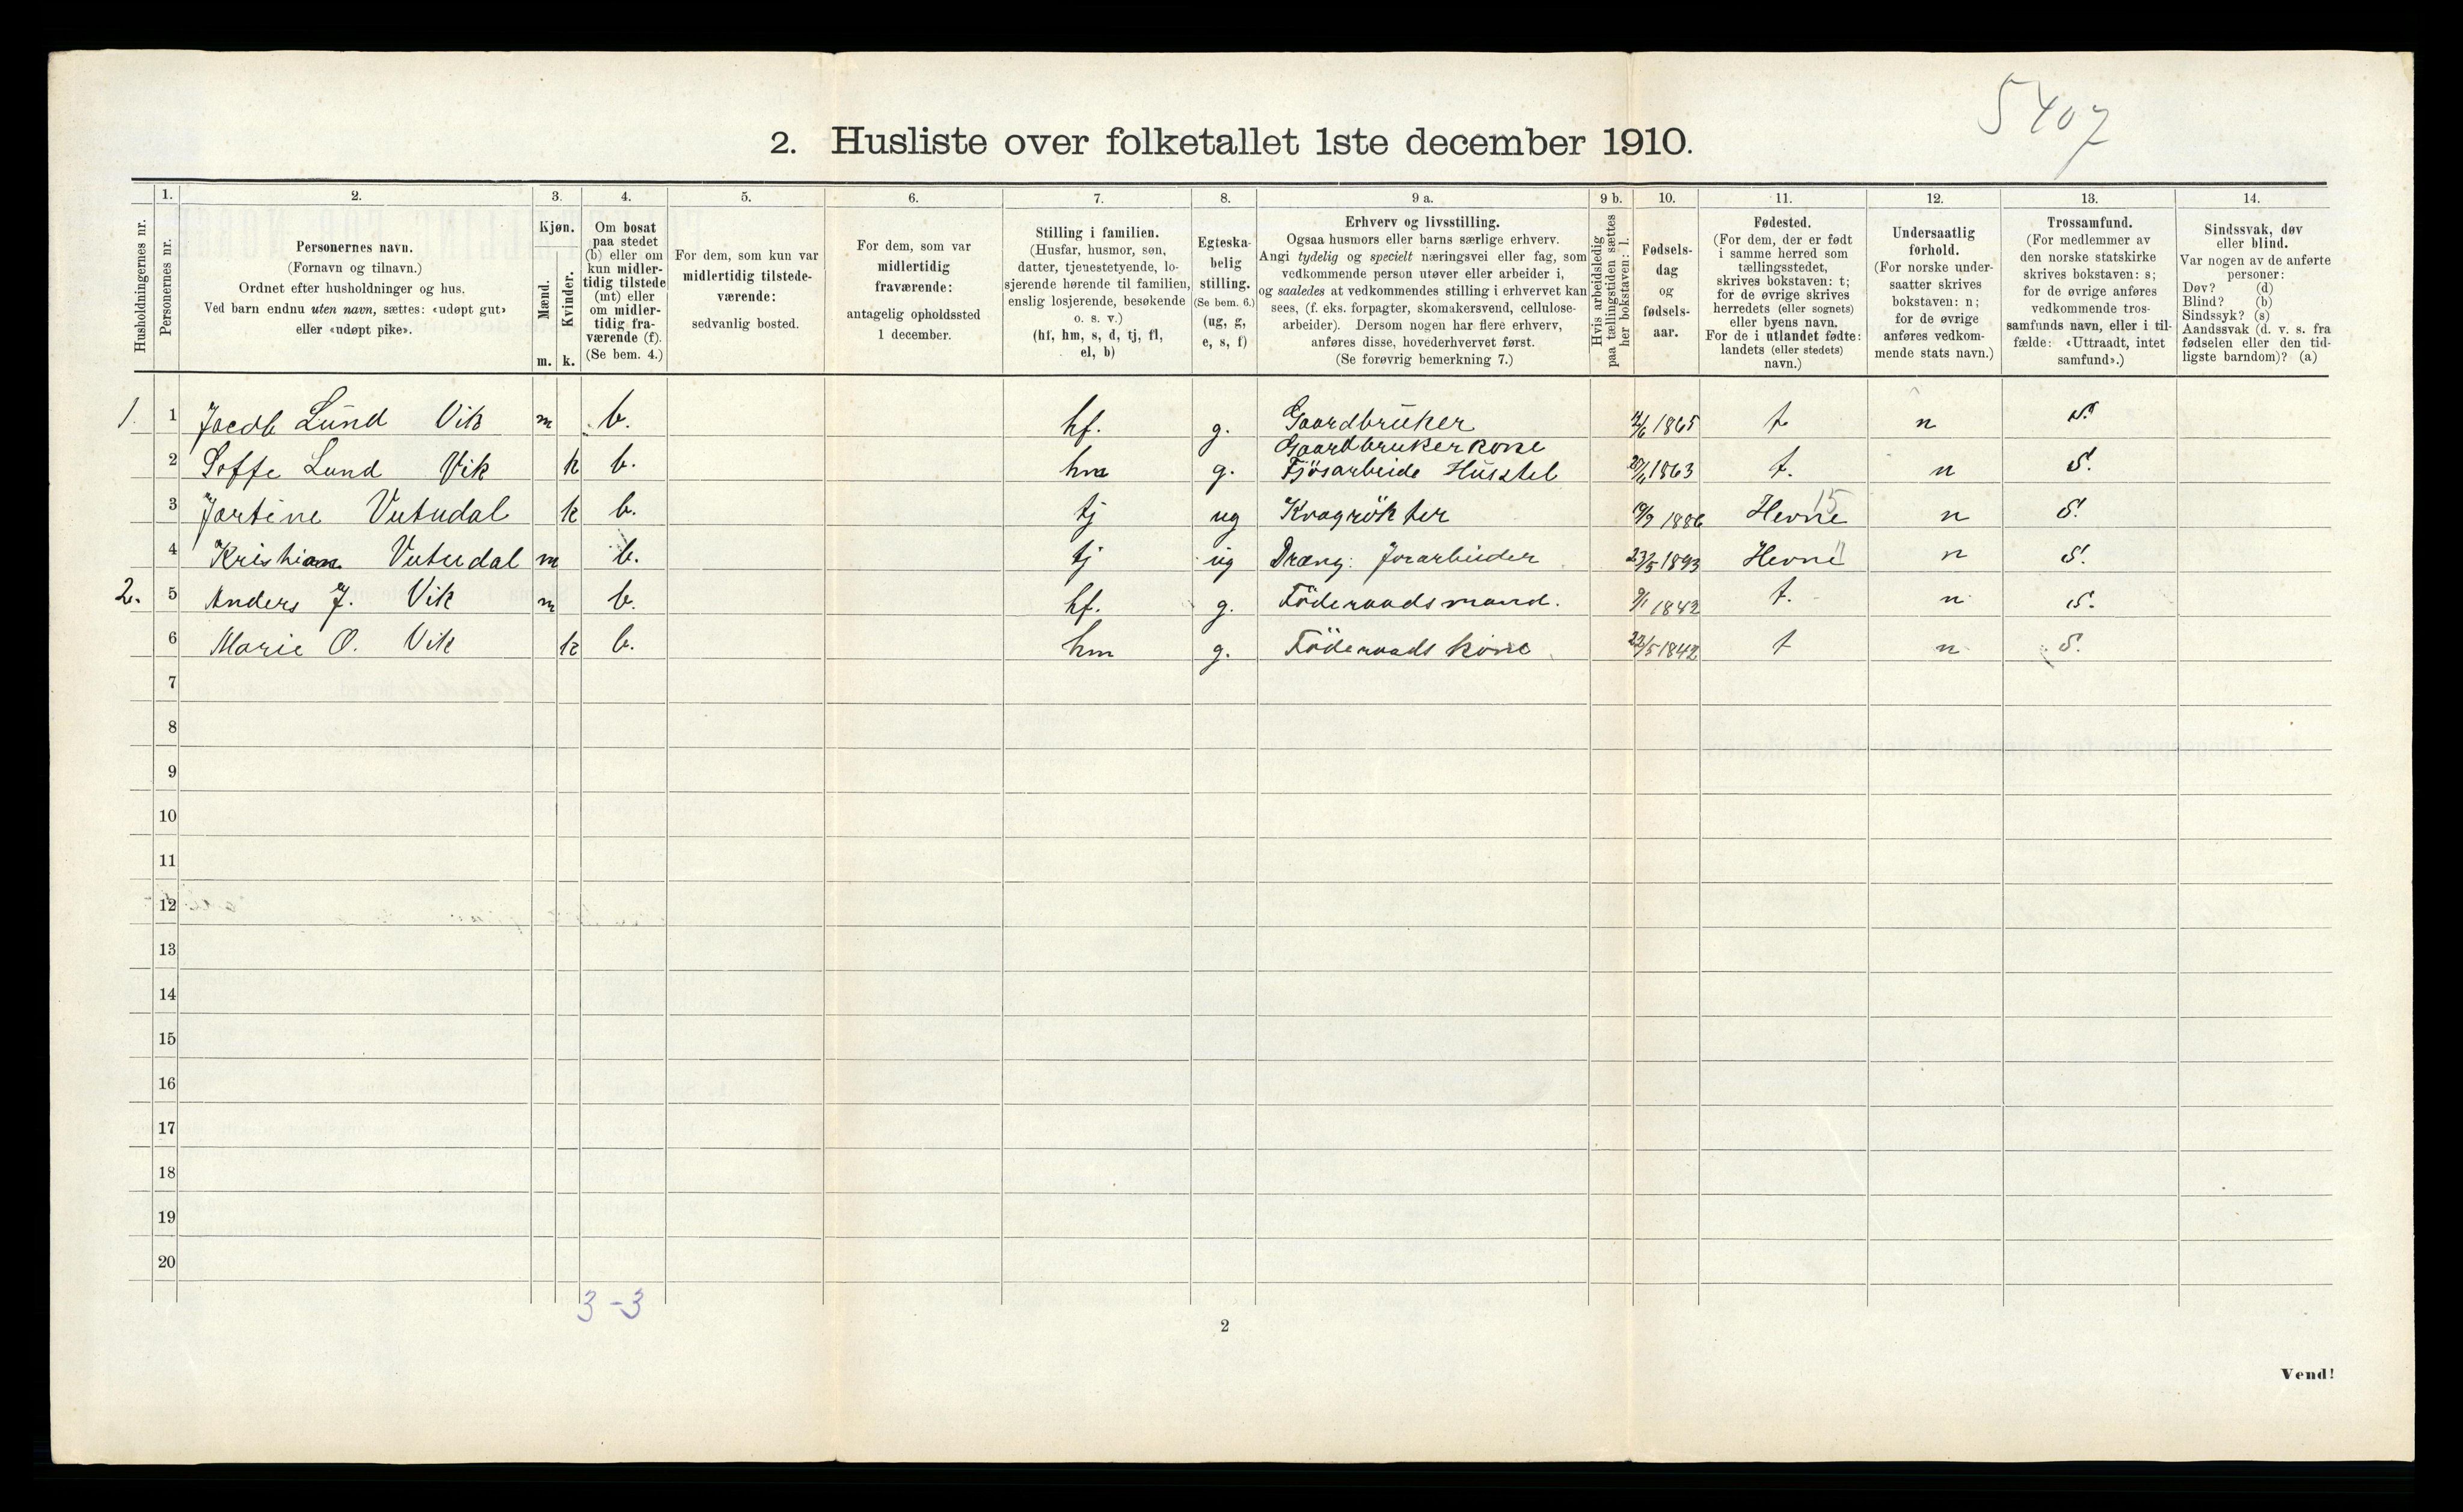 5407
2. Husliste over folketallet 1ste december 1910.
Husholdningernes nr.
1.
Personernes nr.
2.
Personernes navn.
(Fornavn og tilnavn.)
Ordnet efter husholdninger og hus.
Ved barn endnu uten navn, sættes: «udøpt gut»
eller «udøpt pike».
3.
Kjøn.
Mænd.
Kvinder.
m. k.
4.
Om bosat
paa stedet
(b) eller om
kun midler-
tidig tilstede
(mt) eller
om midler-
tidig fra-
værende (f).
(Se bem. 4.)
5.
For dem, som kun var
midlertidig tilstede-
værende:
sedvanlig bosted.
6.
For dem, som var
midlertidig
fraværende:
antagelig opholdssted
1 december.
7.
Stilling i familien.
(Husfar, husmor, søn,
datter, tjenestetyende, lo-
sjerende hørende til familien,
enslig losjerende, besøkende
o. s. v.)
(hf, hm, s, d, tj, fl,
el, b)
8.
Egteska-
belig
stilling.
(Se bem. 6.)
(ug, g,
e, s, f)
9 a.
Erhverv og livsstilling.
Ogsaa husmors eller barns særlige erhverv.
Angi tydelig og specielt næringsvei eller fag, som
vedkommende person utøver eller arbeider i,
og saaledes at vedkommendes stilling i erhvervet kan
sees, (f. eks. forpagter, skomakersvend, cellulose-
arbeider). Dersom nogen har flere erhverv,
anføres disse, hovederhvervet først.
(Se forøvrig bemerkning 7.)
9 b.
Hvis arbeidsledig
paa tællingstiden sættes
her bokstaven: l.
10.
Fødsels-
dag
og
fødsels-
aar.
11.
Fødested.
(For dem, der er født
i samme herred som
tællingsstedet,
skrives bokstaven: t;
for de øvrige skrives
herredets (eller sognets)
eller byens navn.
For de i utlandet fødte:
landets (eller stedets)
navn.)
12.
Undersaatlig
forhold.
(For norske under-
saatter skrives
bokstaven: n;
for de øvrige
anføres vedkom-
mende stats navn.)
13.
Trossamfund.
(For medlemmer av
den norske statskirke
skrives bokstaven: s;
for de øvrige anføres
vedkommende tros-
samfunds navn, eller i til-
fælde: «Uttraadt, intet
samfund».)
14.
Sindssvak, døv
eller blind.
Var nogen av de anførte
personer:
Døv? (d)
Blind? (b)
Sindssyk? (s)
Aandssvak (d. v. s. fra
fødselen eller den tid-
ligste barndom)? (a)
1. 1 Jacob Lund Vik m b. hf. g. Gaardbruker 1865 t n S.
Gaardbrukerkone
2 Soffe Lund Vik k b. hm g. Fjösarbeide Husstel 1863 t. n S.
3 Jortine Vutudal k b. tj ug Kragrökter 1886 Hevne 15 n S.
4 Kristian Vutudal m b. tj ug Dræng: Jorarbeider 23/5 1893 Hevne " n S.
2. 5 Anders J. Vik m b. hf. g. Föderaadsmand. 9/1 1842 t. n S.
6 Marie O. Vik k b. hm g. Föderaads kone 22/5 1842 t n S.
7
8
9
10
11
12
13
14
15
16
17
18
19
20
3-3
2
Vend!